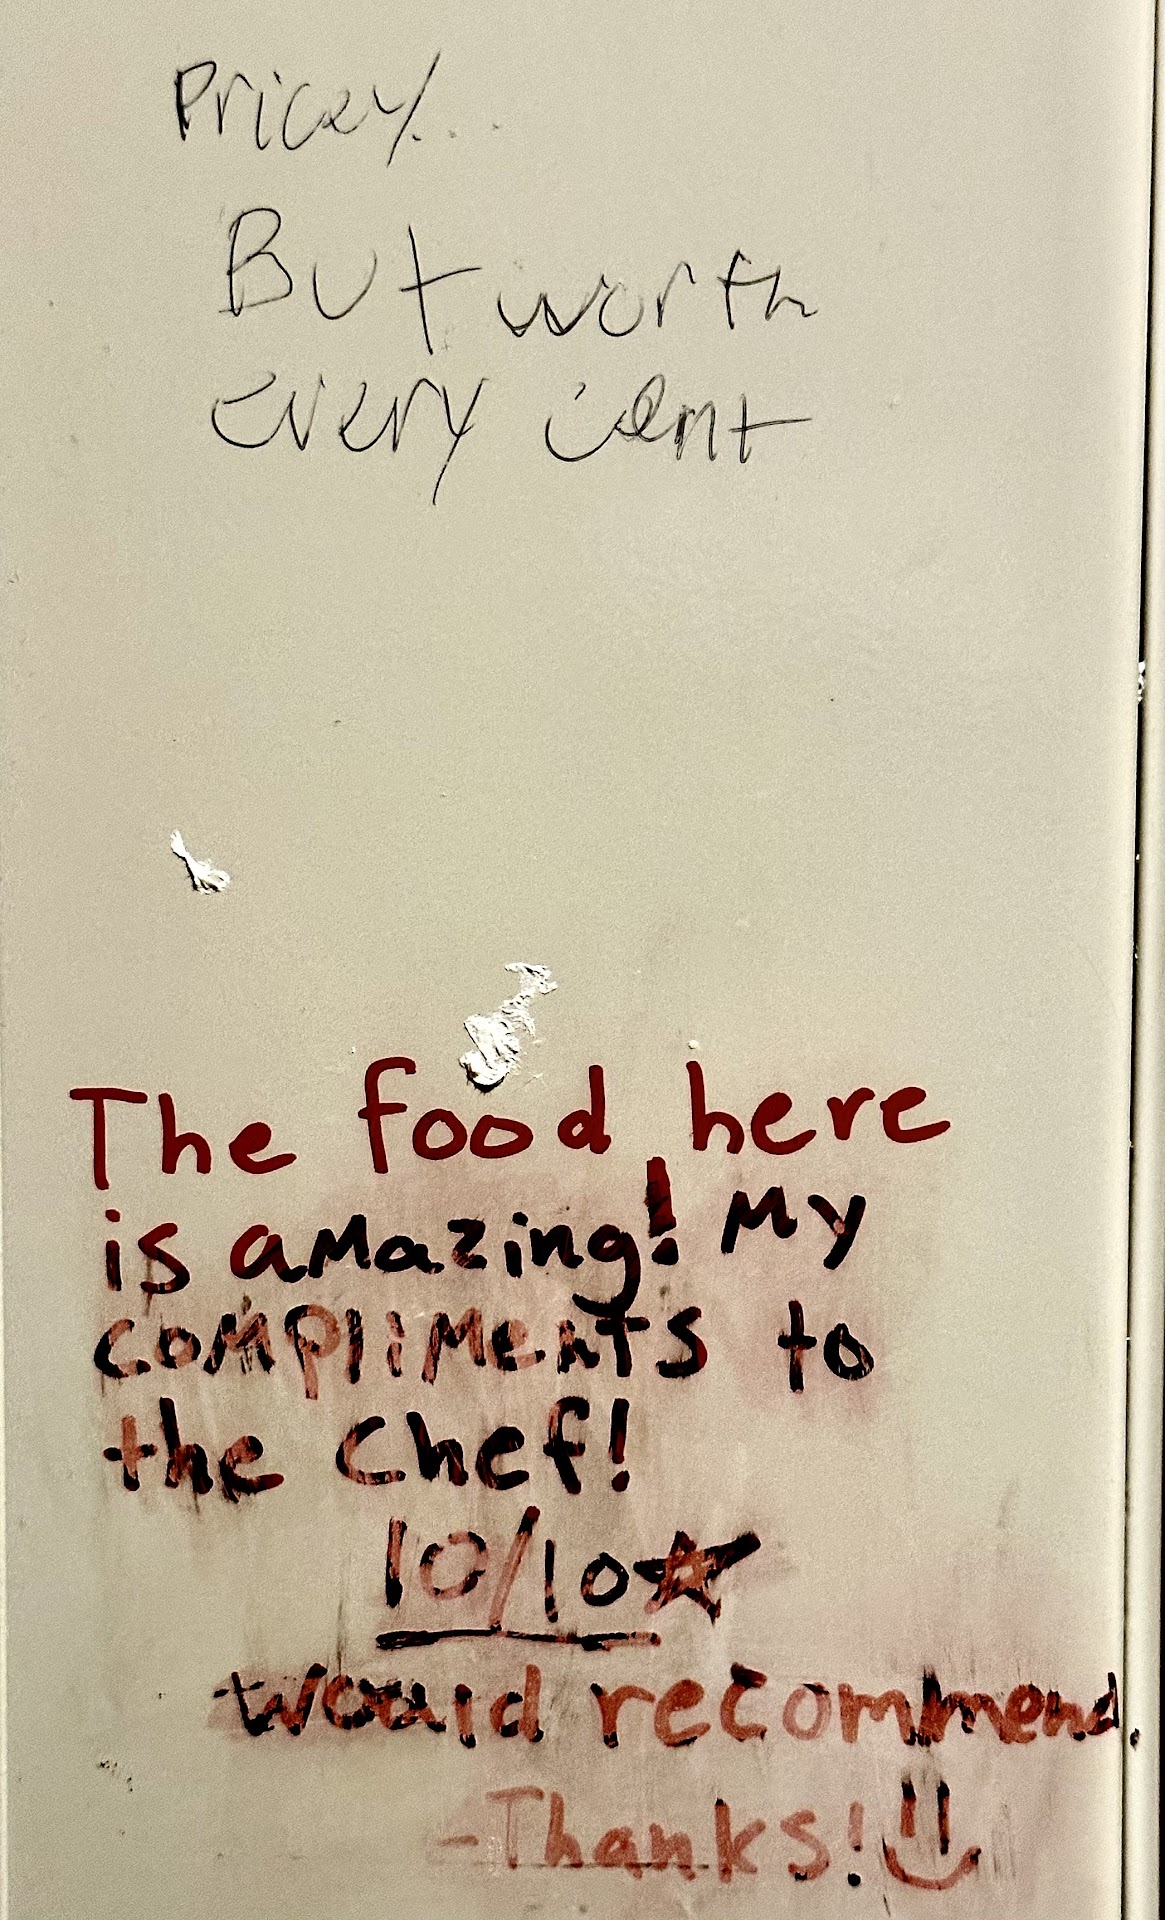 Pricey...
But worth
every cent
The food here
is amazing! My
compliments to
the chef!
10/10☆
would recommend.
-Thanks! :)